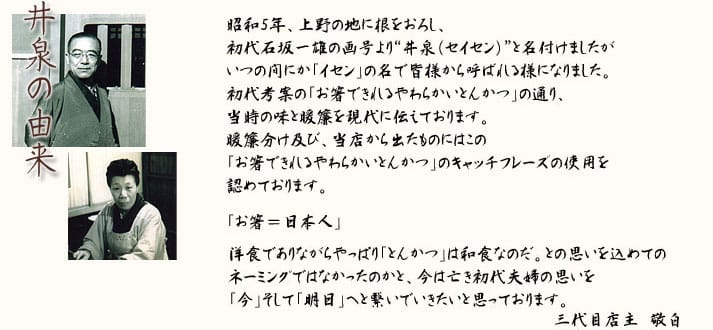 井泉の由来
昭和5年、上野の地に根をおろし、
初代石坂一雄の画号より“井泉(セイセン)”と名付けましたが
いつの間にか「イセン」の名で皆様から呼ばれる様になりました。
初代考案の「お箸できれるやわらかいとんかつ」の通り、
当時の味と暖簾を現代に伝えております。
暖簾分け及び、当店から出たものにはこの
「お箸できれるやわらかいとんかつ」のキャッチフレーズの使用を
認めております。
「お箸=日本人」
洋食でありながらやっぱり「とんかつ」は和食なのだ。との思いを込めての
ネーミングではなかったのかと、今は亡き初代夫婦の思いを
「今」そして「明日」へと繋いでいきたいと思っております。
三代目店主 敬白